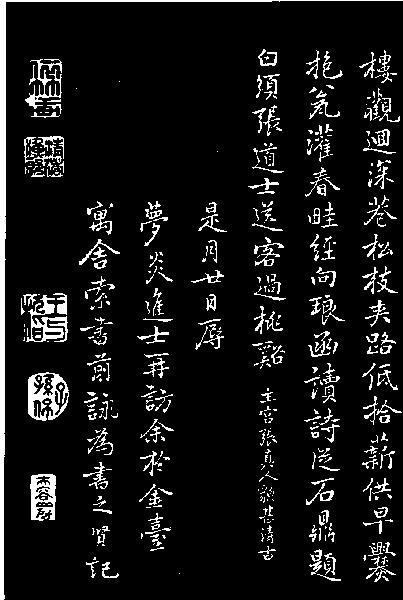 樓觀迴深巷松枝夾路低拾薪供早爨
抱瓮灌春畦經向琅函讀詩從石鼎題
白須張道士送客過桃谿 主宮張真人貌甚清古
是月廿日辱
夢炎進士再訪余於金臺
寓舍索書前詠為書之賢記